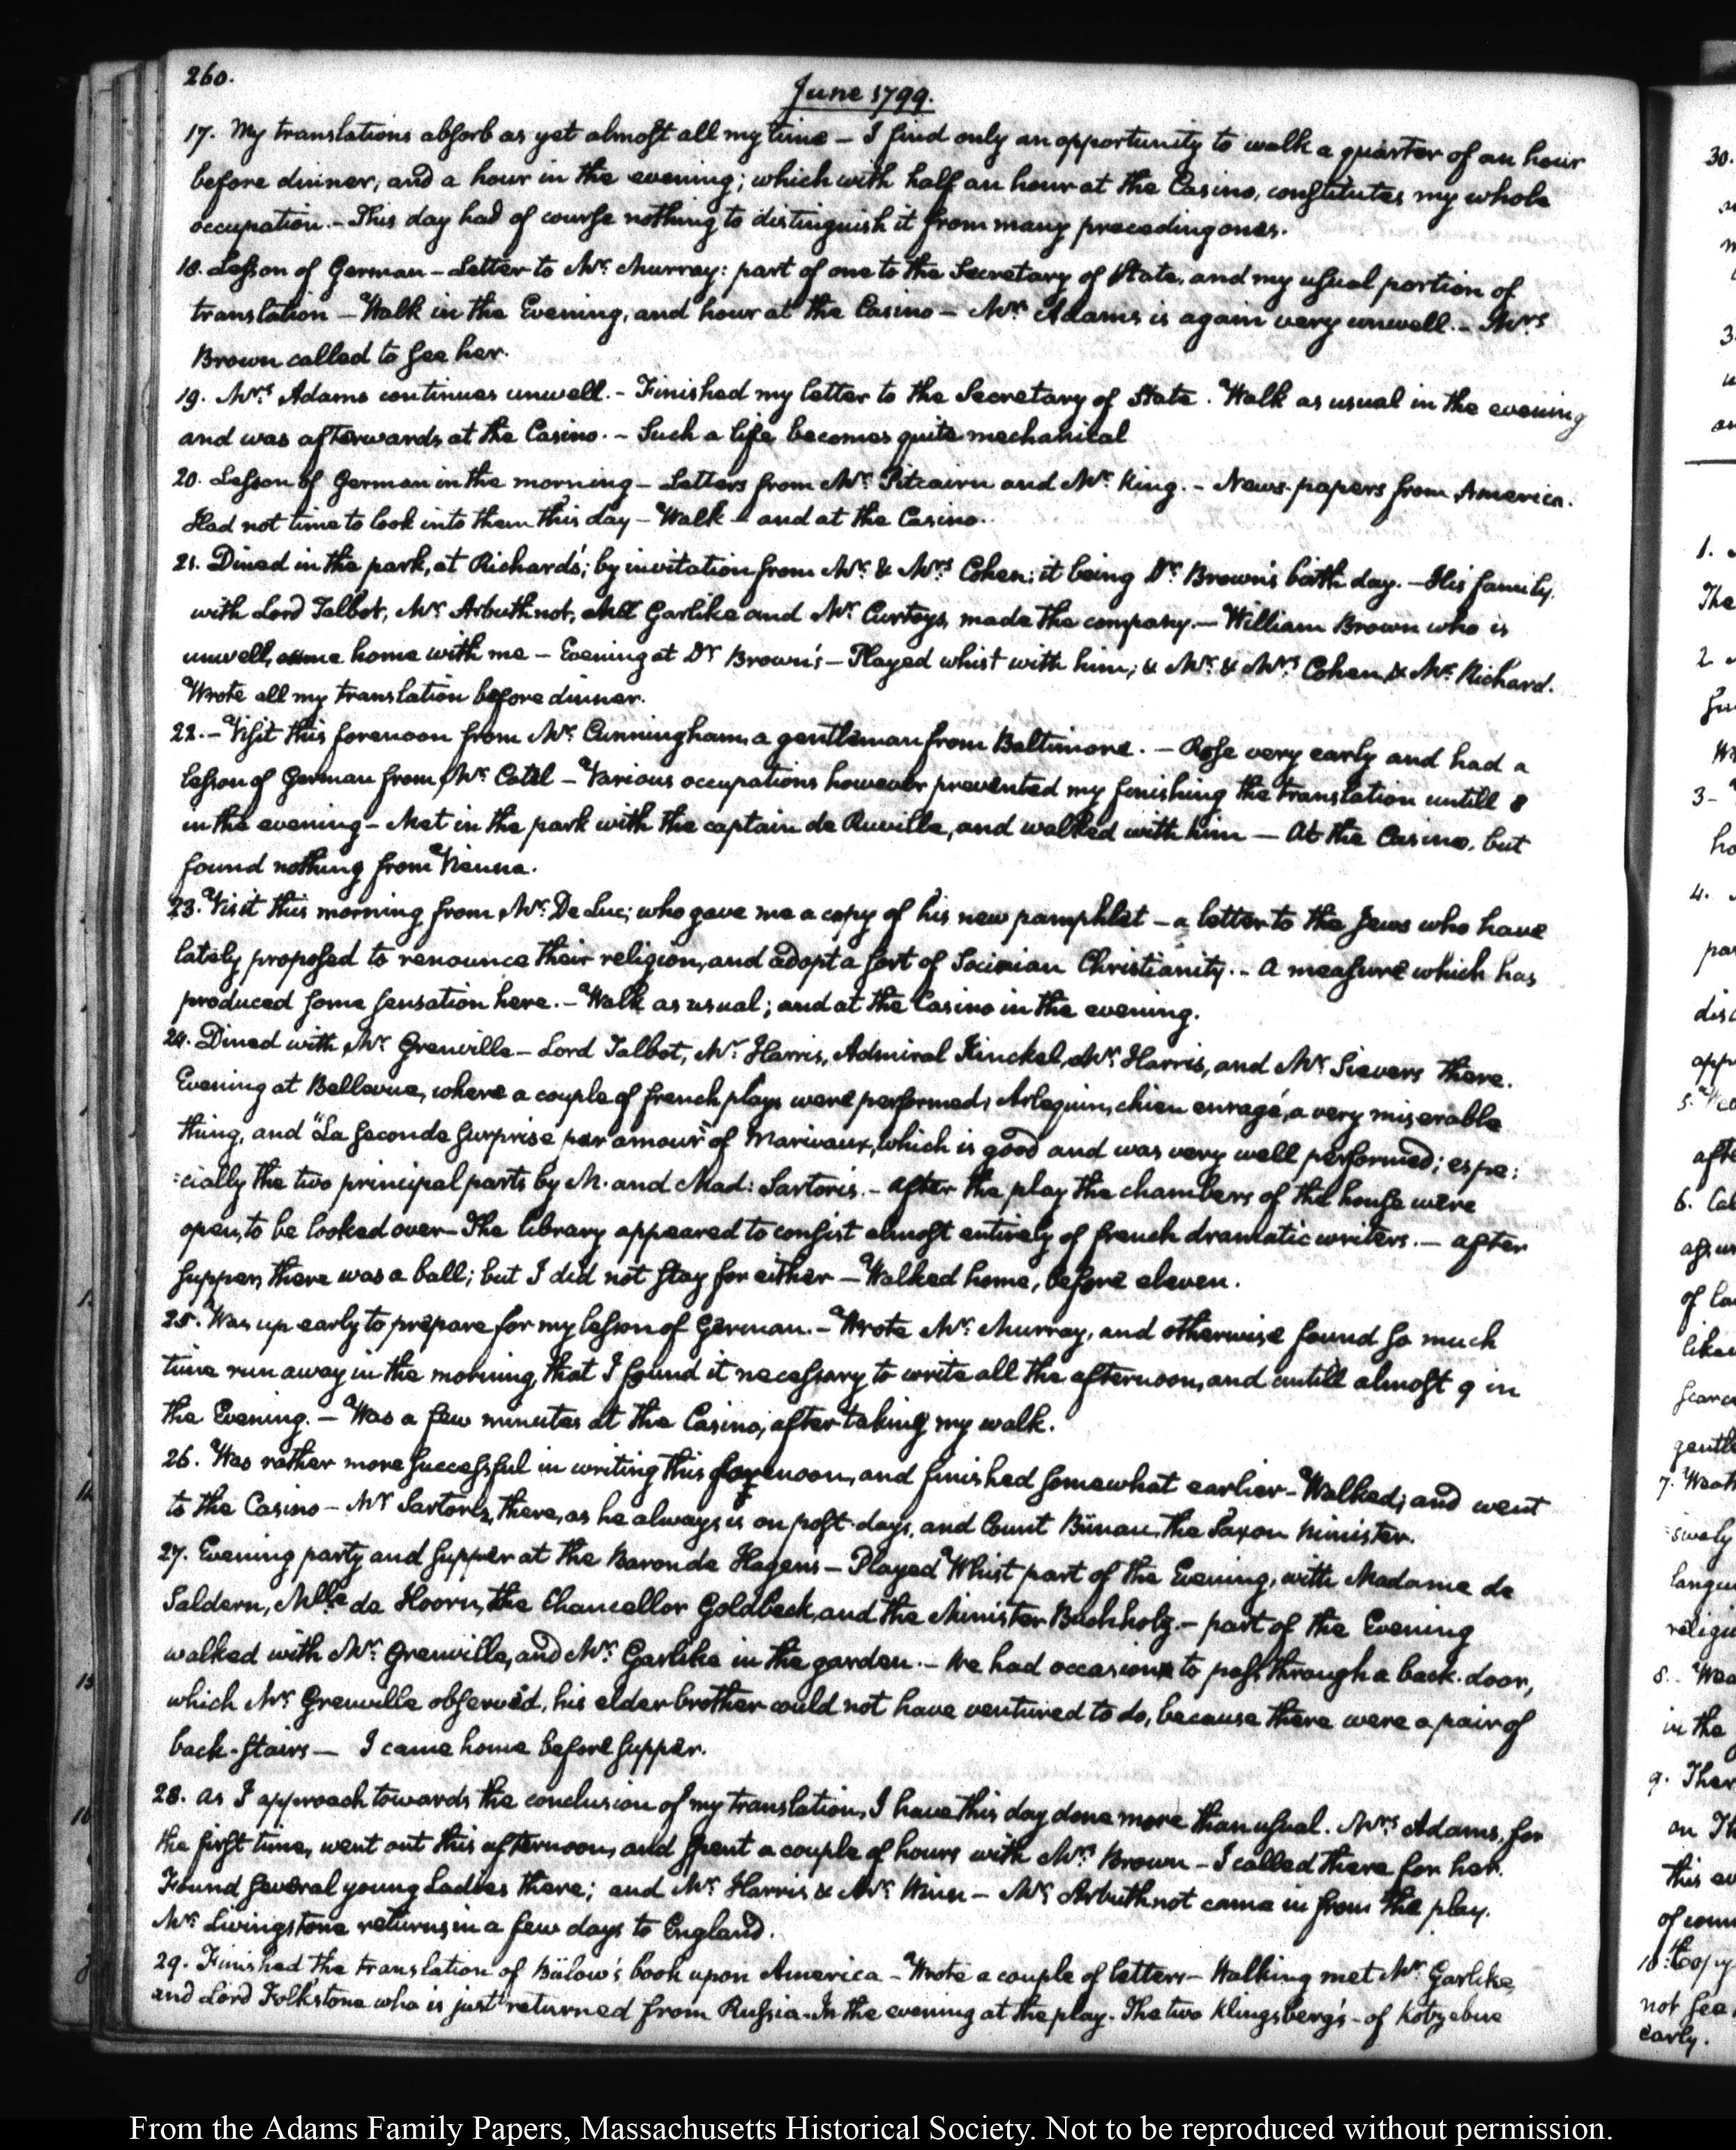 260.
June 1799.
17. My translations absorb as yet almost all my time – I find only an opportunity to walk a quarter of an hour
before dinner, and a hour in the evening; which with half an hour at the Casino, constitutes my whole
occupation. – This day had of course nothing to distinguish it from many preceding ones.
18. Lesson of German – Letter to Mr. Murray: part of one to the Secretary of State, and my usual portion of
translation – Walk in the Evening, and hour at the Casino – Mrs. Adams is again very unwell. – Mrs
Brown called to see her.
19. Mrs. Adams continues unwell. – Finished my letter to the Secretary of State. Walk as usual in the evening
and was afterwards at the Casino. – Such a life becomes quite mechanical
20. Lesson of German in the morning – Letters from Mr. Pitcairn and Mr. King. – News-papers from America.
Had not time to look into them this day – Walk – and at the Casino.
21. Dined in the park, at Richard's; by invitation from Mr. & Mrs. Cohen: it being Dr. Brown's birth day. – His family,
with Lord Talbot, Mr. Arbuthnot, Mr Garlike and Mr. Curtoys, made the company. – William Brown who is
unwell, came home with me – Evening at Dr Brown's – Played whist with him; & Mr. & Mrs Cohen, & Mr. Richard.
Wrote all my translation before dinner.
22. – Visit this forenoon from Mr. Cunningham, a gentleman from Baltimore. – Rose very early and had a
lesson of German from Mr. Catel – Various occupations however prevented my finishing the translation untill 8
in the evening – Met in the park with the captain de Ruville, and walked with him — At the Casino, but
found nothing from Vienna.
23. Visit this morning from Mr. De Luc; who gave me a copy of his new pamphlet – a letter to the Jews who have
lately proposed to renounce their religion, and adopt a sort of Socinian Christianity. – A measure which has
produced some sensation here. – Walk as usual; and at the Casino in the evening.
24. Dined with Mr. Grenville – Lord Talbot, Mr. Harris, Admiral Kinckel, Mr. Harris, and Mr. Sievers there.
Evening at Bellevue, where a couple of french plays were performed; Arlequin, chien enragé, a very miserable
thing, and "La seconde surprise par amour" of Marivaux, which is good and was very well performed; espe:
:cially the two principal parts by M. and Mad: Sartoris. – After the play the chambers of the house were
open, to be looked over – The library appeared to consist almost entirely of french dramatic writers. — After
supper, there was a ball; but I did not stay for either — Walked home, before eleven.
25. Was up early to prepare for my lesson of German. – Wrote Mr. Murray, and otherwise found so much
time run away in the morning, that I found it necessary to write all the afternoon, and untill almost 9 in
the Evening. – Was a few minutes at the Casino, after taking my walk.
26. Was rather more successful in writing this forenoon, and finished somewhat earlier – Walked; and went
to the Casino – Mr Sartoris, there, as he always is on post-days, and Count Bünau, the Saxon Minister.
27. Evening party and supper at the Baron de Hagen's – Played Whist part of the Evening, with Madame de
Saldern, Mlle de Hoorn, the Chancellor Goldbeck, and the Minister Buchholz. – part of the Evening
walked with Mr. Grenville, and Mr. Garlike in the garden. – We had occasion to pass through a back-door,
which Mr. Grenville observed, his elder brother would not have ventured to do, because there were a pair of
back-stairs — I came home before supper.
28. As I approach towards the conclusion of my translation, I have this day done more than usual. Mrs. Adams, for
the first time, went out this afternoon, and spent a couple of hours with Mrs Brown – I called there for her.
Found several young Ladies there; and Mr. Harris & Mr. Winn – Mr. Arbuthnot came in from the play.
Mr. Livingstone returns in a few days to England.
29. Finished the translation of Bülow's book upon America – Wrote a couple of letters – Walking met Mr. Garlike,
and Lord Folkstone who is just returned from Russia – In the evening at the play. The two Klingsberg's – of Kotzebue
From the Adams Family Papers, Massachusetts Historical Society. Not to be reproduced without permission.